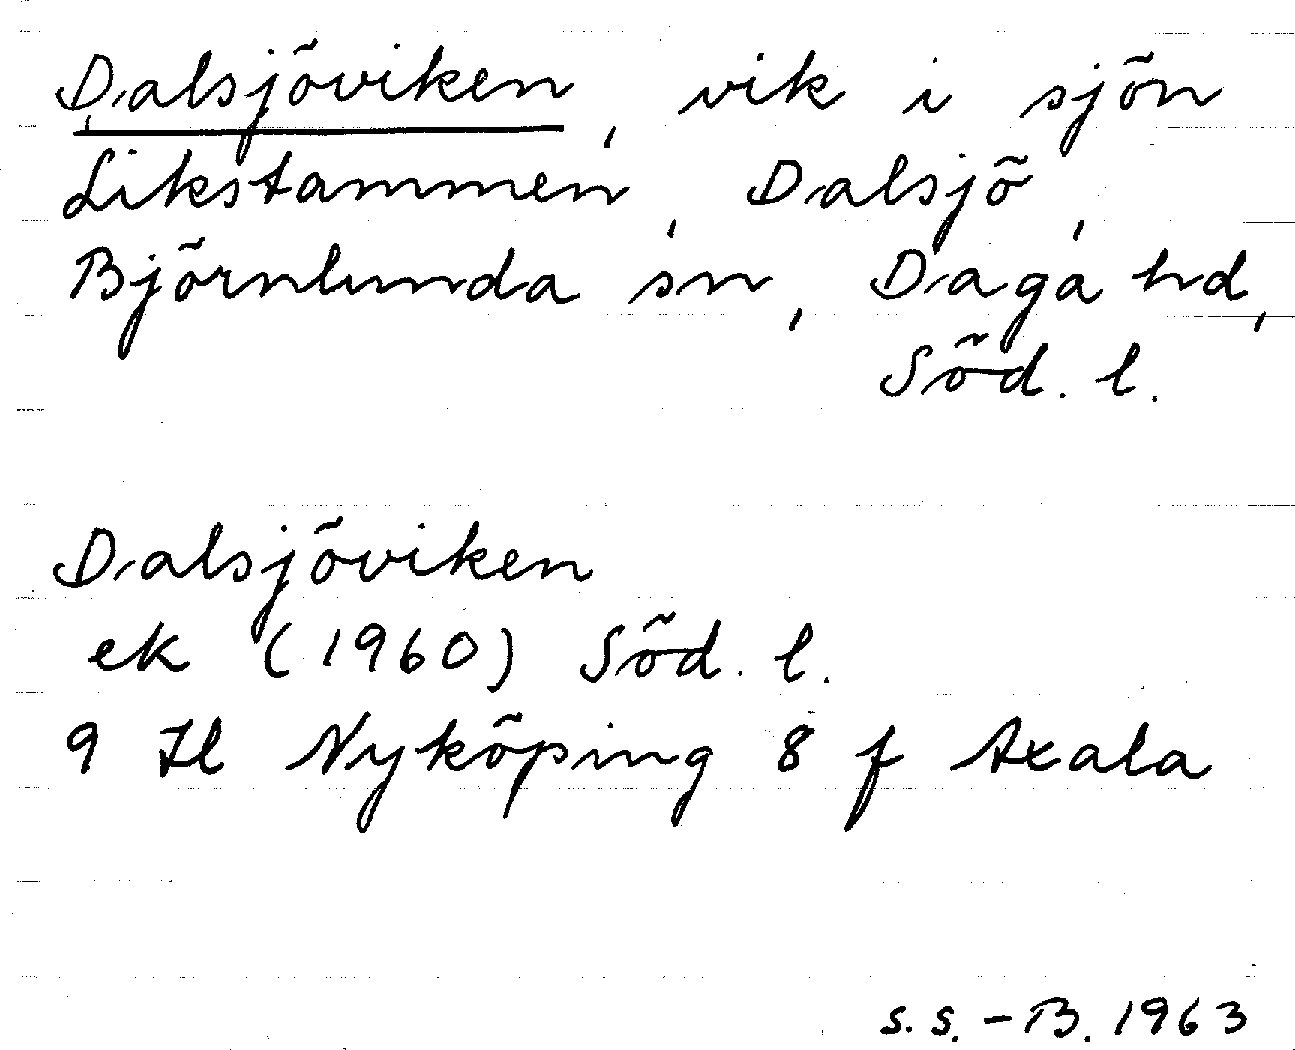 Dalsjöviken, vik i sjön
Likstammen, Dalsjö,
Björnlunda sn, Daga hd,
Söd. l.
Dalsjöviken
ek (1960) Söd. l.
9 Hl Nyköping 8 f Axala
S.S.-B. 1963